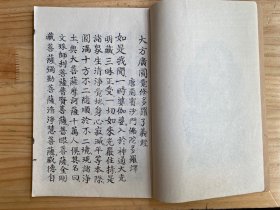 大方廣圓覺修多羅了義經
唐罽賓沙門佛陀多羅譯
如是我聞一時婆伽婆入於神通大光
明藏三昧正受一切如來光嚴住持是
諸眾生清淨覺地身心寂滅平等本際
圓滿十方不二隨順於不二境現諸淨
土與大菩薩摩訶薩十萬人俱其名曰
文殊師利菩薩普賢菩薩普眼菩薩金剛
藏菩薩彌勒菩薩清淨慧菩薩威德自